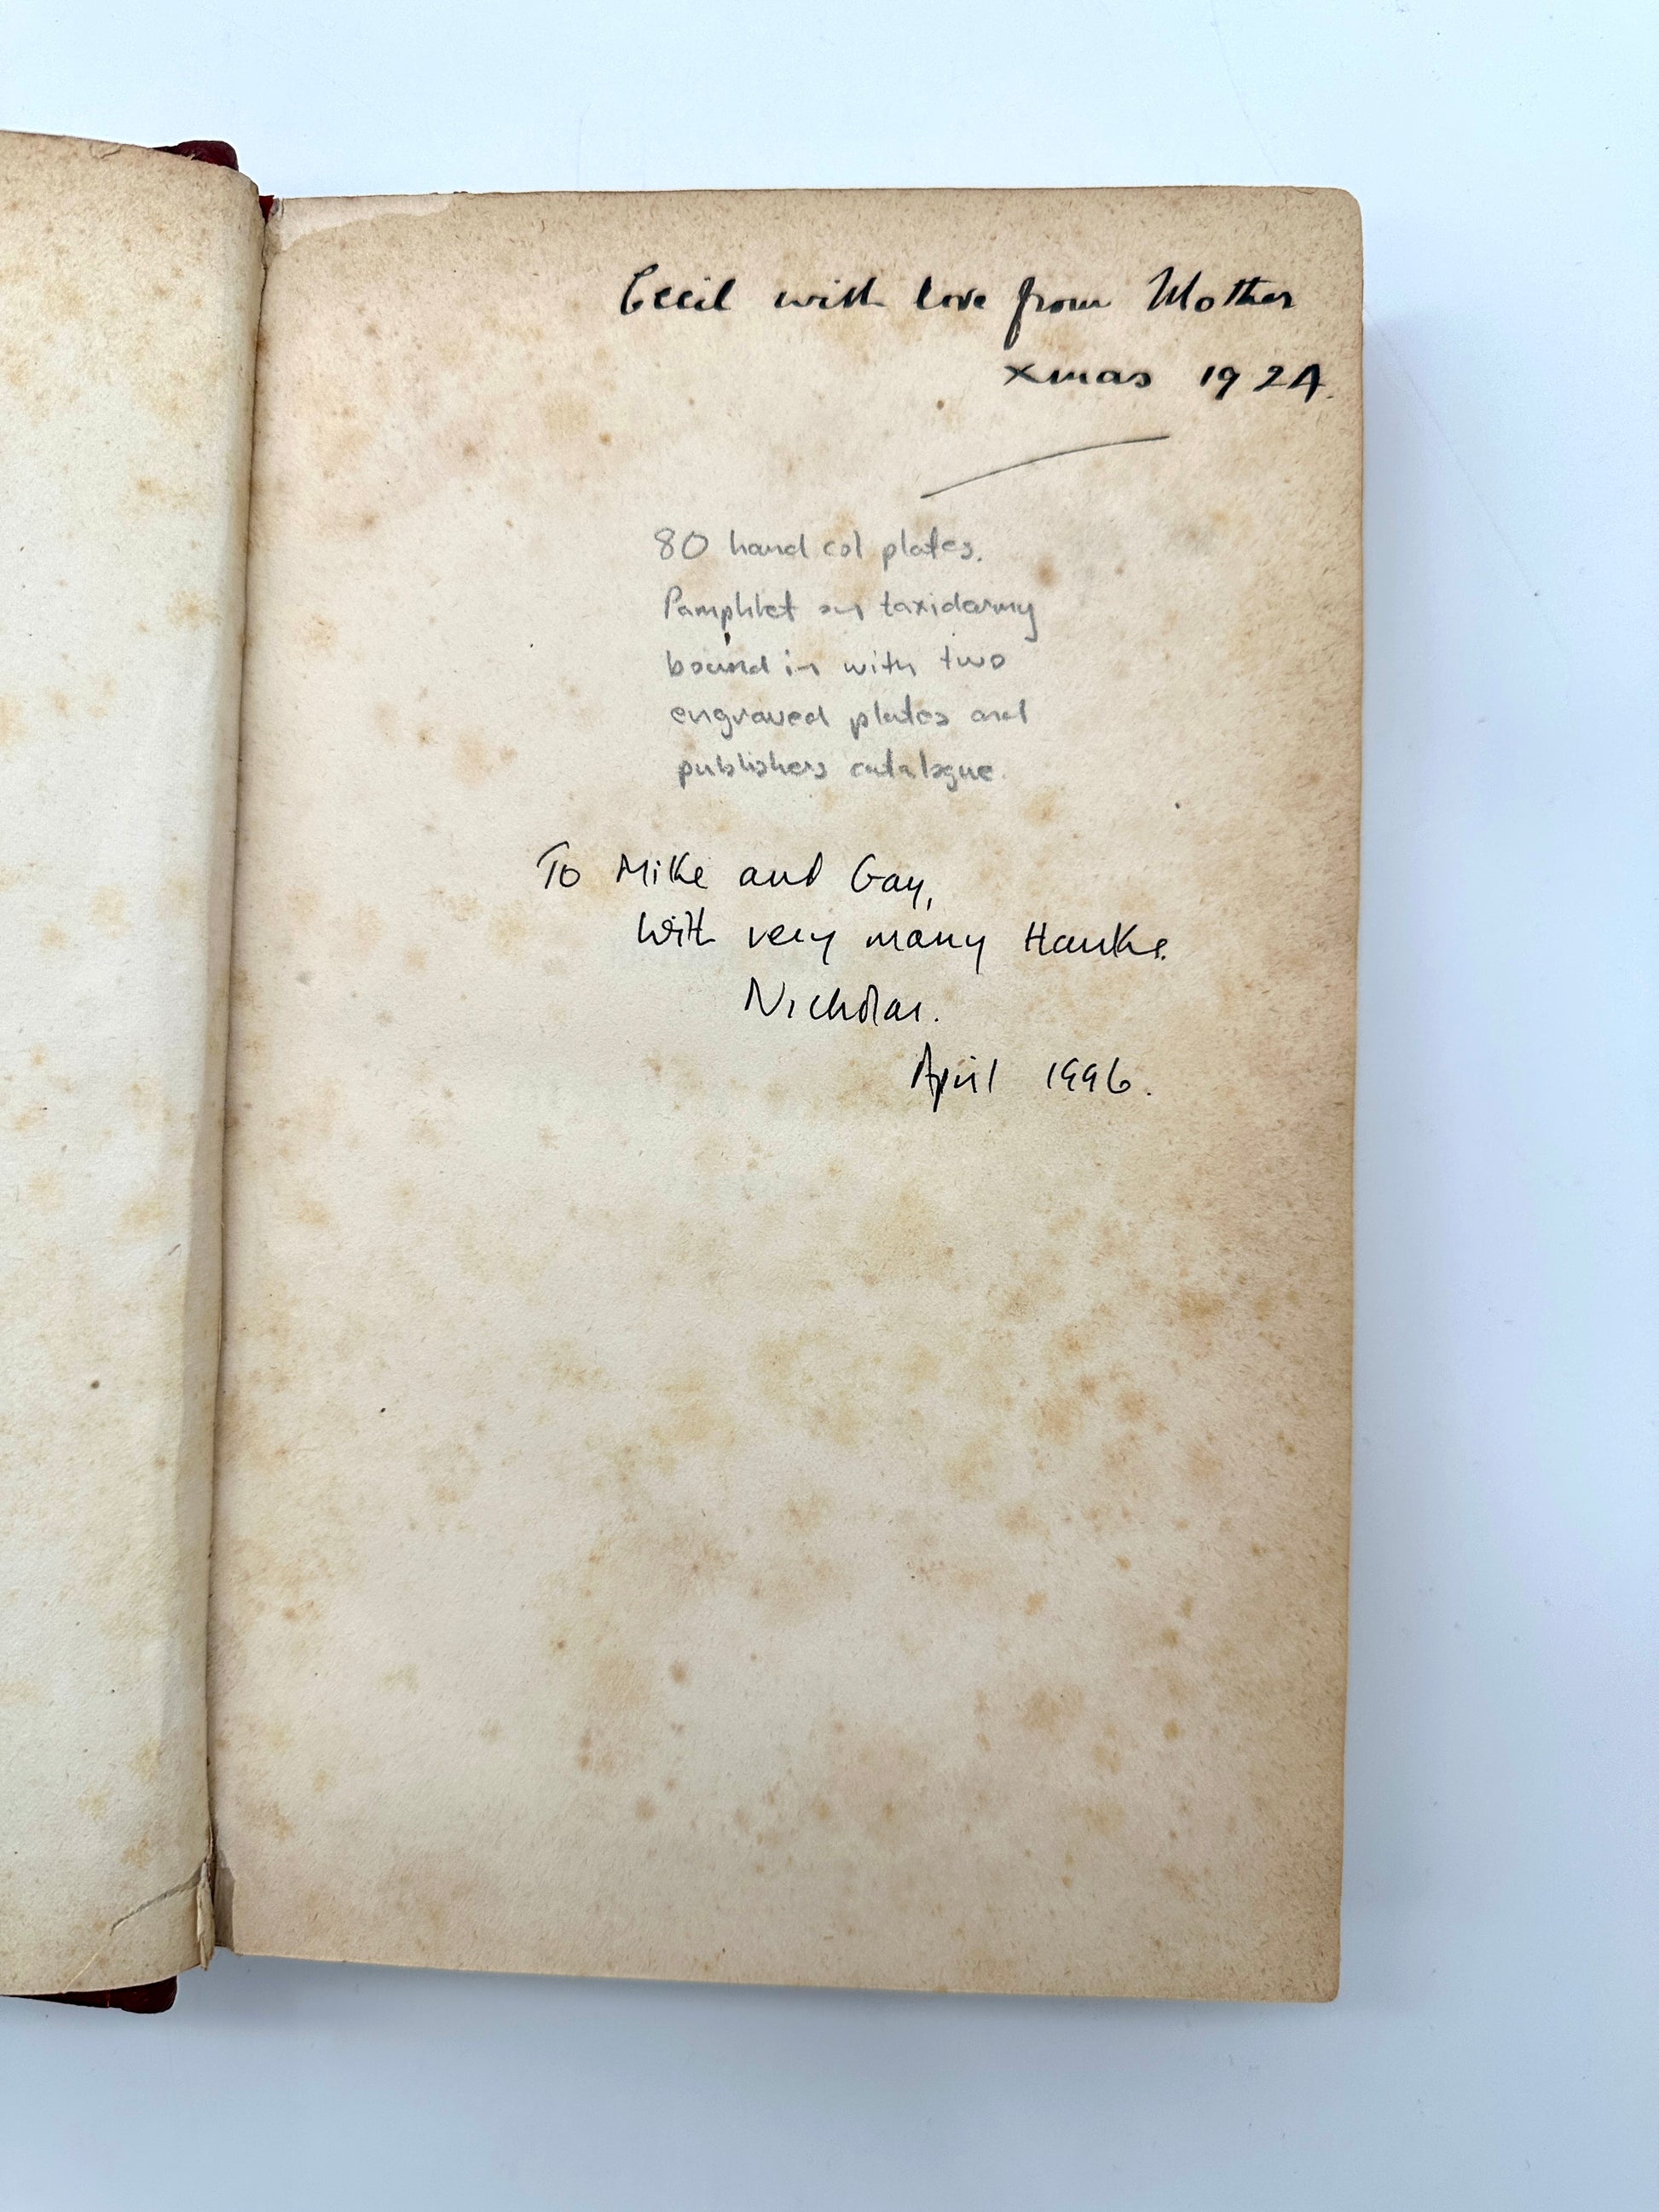 Cecil with love from Mother
xmas 1924.
80 hand col plates.
Pamphlet on taxidermy
bound in with two
engraved plates and
publishers catalogue.
To Mike and Gay,
With very many thanks.
Nicholas.
April 1996.